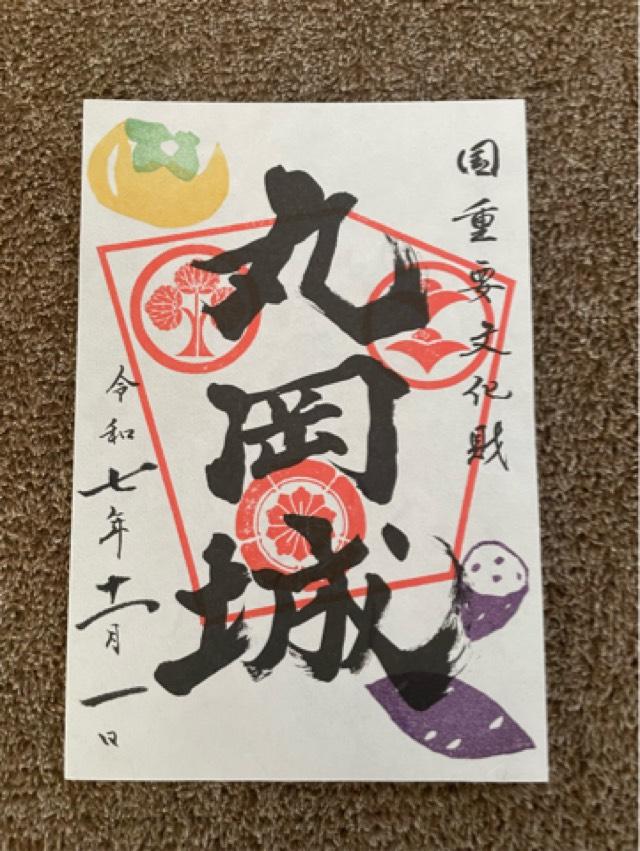 国重要文化財
丸岡城
令和七年十一月一日